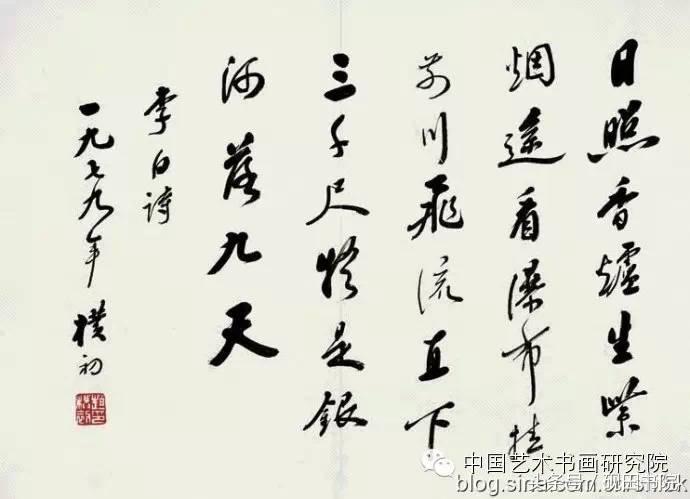 日照香爐生紫
烟遙看瀑布挂
前川飛流直下
三千尺疑是銀
河落九天
李白詩
一九七九年 樸初
中国艺术书画研究院
头条号 / 砚田书院